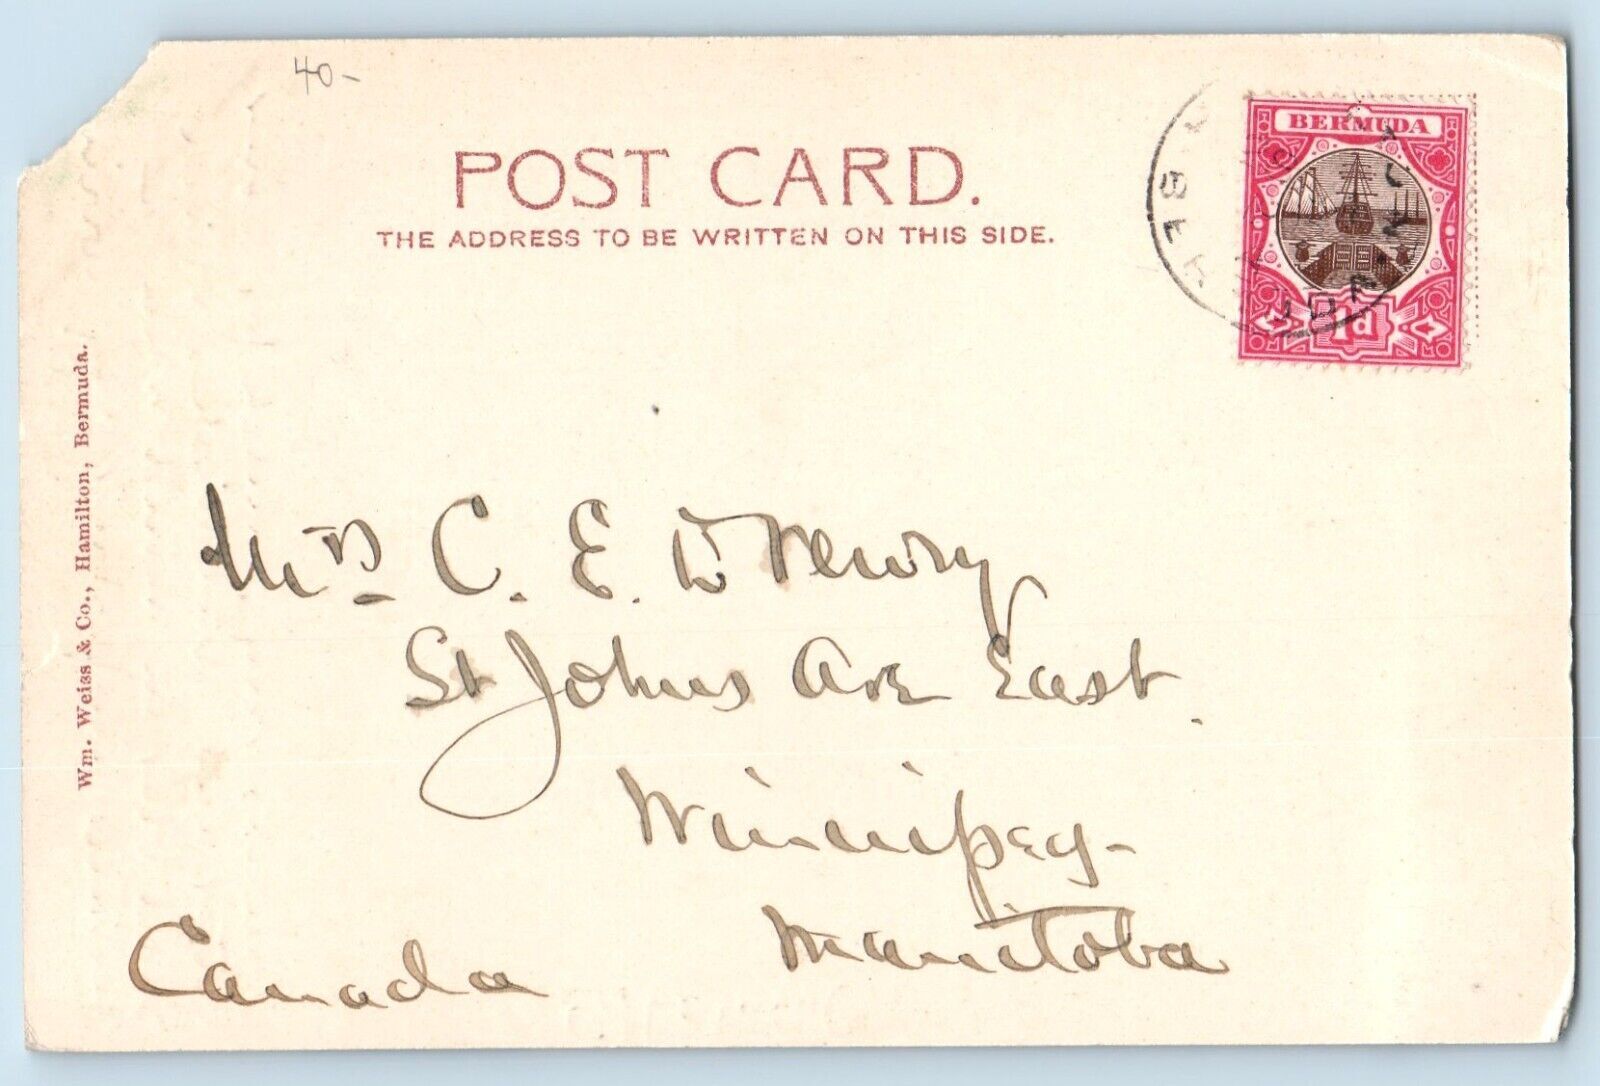 40-
POST CARD.
THE ADDRESS TO BE WRITTEN ON THIS SIDE.
BERMUDA
1d
Wm. Weiss & Co., Hamilton, Bermuda.
Mrs C. E. Drewry
St Johns Ave East.
Winnipeg-
Manitoba
Canada